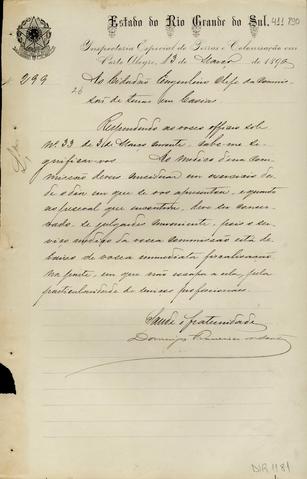 Estado do Rio Grande do Sul. 411 790
Inspectoria Especial de Terras e Colonisação em
Porto Alegre, 13 de Março de 1890
299
Ao Cidadão Engenheiro Chefe da Commis
são de terras em Caxias
Respondendo ao vosso officio sob
Nº 33 de 3 de Março corrente, cabe-me si
gnificar-vos
Ao medico dessa com
missão deveis considerar em
de e dar em que se vos apresentar, e quanto
ao pessoal que deve ser conser
vado, se julgardes necessario, pois o ser
viço medico da vossa commissão está de
baixo de vossa immediata fiscalisação
na parte, em que não escapa a ella, pela
particularidade de serviços profissionaes.
Saude e fraternidade
Domingos
DIR 1181